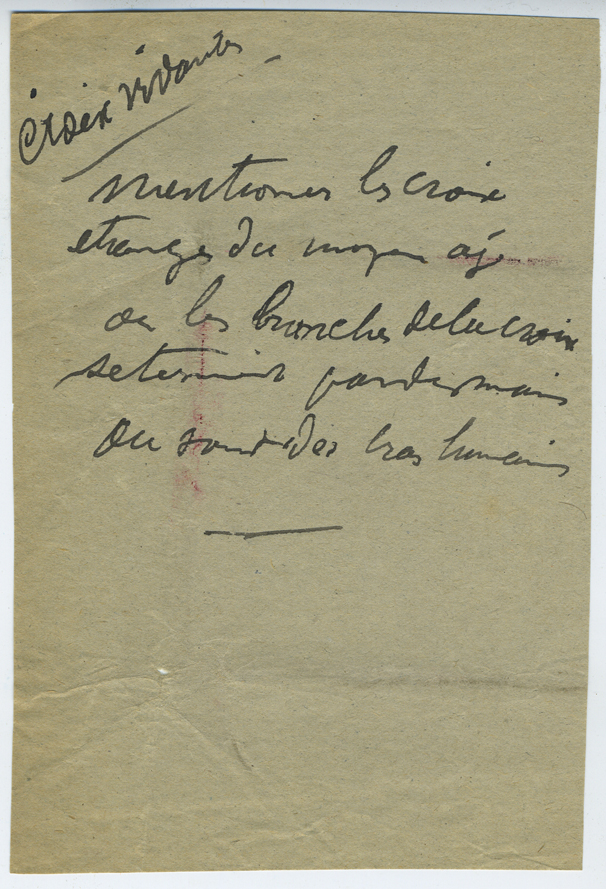 croix vivantes
mentionner les croix
etranges du moyen age
ou les branches de la croix
se terminent par des mains
ou sont des bras humains